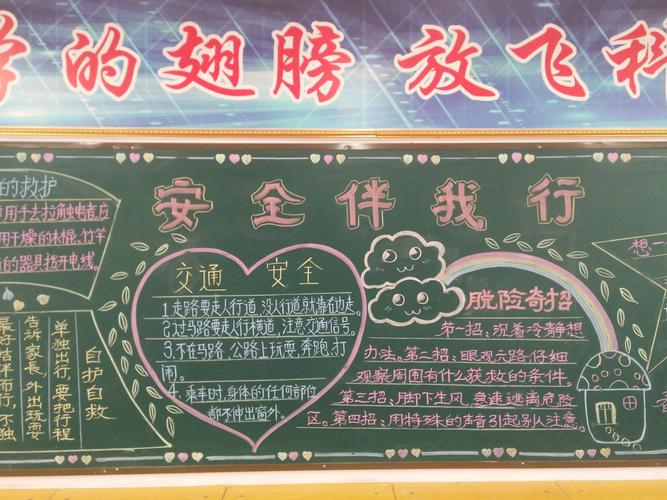 的翅膀 放飞科
安全伴我行
的救护
用手去拉触电者,应
用干燥的木棍、竹竿
的器具拨开电线。
自护自救
单独出行,要把行程
告诉家长,外出玩耍
最好结伴而行,不独
交通安全
1.走路要走人行道,没人行道就靠右边走。
2.过马路要走人行横道,注意交通信号。
3.不在马路、公路上玩耍、奔跑、打
闹。
4.乘车时,身体的任何部位
都不伸出窗外。
脱险奇招
第一招、沉着冷静想
办法。第二招、眼观六路,仔细
观察周围有什么获救的条件。
第三招、脚下生风,急速逃离危险
区。第四招、用特殊的声音引起别人注意。
想一